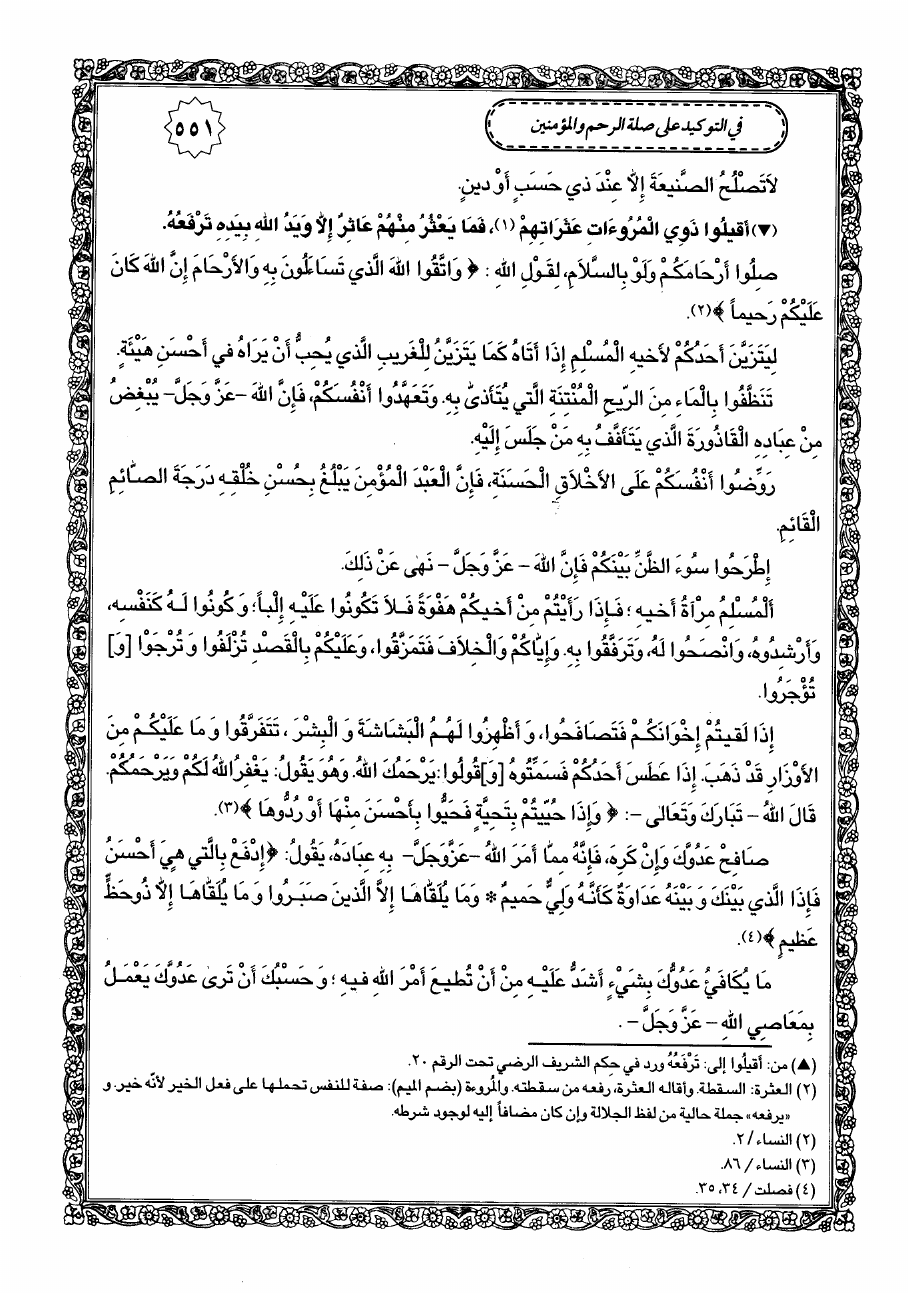 في التوكيد على صلة الرحم والمؤمنين
٥٥١
لاَتَصْلُحُ الصَّنيعَةَ إِلاَّ عِنْدَ ذي حَسَبٍ أَوْ دينٍ.
(▼) أَقيلُوا ذَوِي الْمُرُوءَاتِ عَثَرَاتِهِمْ (١)، فَمَا يَعْثُرُ مِنْهُمْ عَاثِرٌ إِلاَّ وَيَدُ اللهِ بِيَدِهِ تَرْفَعُهُ.
صِلُوا أَرْحَامَكُمْ وَلَوْ بِالسَّلاَمِ، لِقَوْلِ اللهِ : ﴿ وَاتَّقُوا اللهَ الَّذي تَسَاءَلُونَ بِهِ وَالأَرْحَامَ إِنَّ اللهَ كَانَ
عَلَيْكُمْ رَحيماً ﴾(٢).
لِيَتَزَيَّنَ أَحَدُكُمْ لأَخيهِ الْمُسْلِمِ إِذَا أَتَاهُ كَمَا يَتَزَيَّنُ لِلْغَريبِ الَّذي يُحِبُّ أَنْ يَرَاهُ في أَحْسَنِ هَيْئَةٍ.
تَنَظَّفُوا بِالْمَاءِ مِنَ الريّحِ الْمُنْتِنَةِ الَّتي يُتَأَذىّٰ بِهِ. وَتَعَهَّدُوا أَنْفُسَكُمْ، فَإِنَّ اللهَ -عَزَّ وَجَلَّ- يُبْغِضُ
مِنْ عِبَادِهِ الْقَاذُورَةَ الَّذي يَتَأَفَّفُ بِهِ مَنْ جَلَسَ إِلَيْهِ.
رَوِّضُوا أَنْفُسَكُمْ عَلَى الأَخْلاَقِ الْحَسَنَةِ، فَإِنَّ الْعَبْدَ الْمُؤْمِنَ يَبْلُغُ بِحُسْنِ خُلْقِهِ دَرَجَةَ الصّائِمِ
الْقَائِمِ.
إِطْرَحُوا سُوءَ الظَّنِّ بَيْنَكُمْ فَإِنَّ اللهَ - عَزَّ وَجَلَّ - نَهٰى عَنْ ذَلِكَ.
أَلْمُسْلِمُ مِرْآةُ أَخيهِ ؛ فَإِذَا رَأَيْتُمْ مِنْ أَخيكُمْ هَفْوَةً فَلاَ تَكُونُوا عَلَيْهِ إِلْباً؛ وَ كُونُوا لَهُ كَنَفْسِهِ،
وَأَرْشِدُوهُ، وَانْصَحُوا لَهُ، وَتَرَفَّقُوا بِهِ. وَإِيّاكُمْ وَالْخِلاَفَ فَتَمَزَّقُوا، وَعَلَيْكُمْ بِالْقَصْدِ تُزْلَفُوا وَ تُرْجَوْا [وَ]
تُؤْجَرُوا.
إِذَا لَقيتُمْ إِخْوَانَكُمْ فَتَصَافَحُوا، وَ أَظْهِرُوا لَهُمُ الْبَشَاشَةَ وَ الْبِشْرَ ، تَتَفَرَّقُوا وَ مَا عَلَيْكُمْ مِنَ
الأَوْزَارِ قَدْ ذَهَبَ. إِذَا عَطَسَ أَحَدُكُمْ فَسَمِّتُوهُ [وَ] قُولُوا: يَرْحَمُكَ اللهُ. وَهُوَ يَقُولُ: يَغْفِرُ اللهُ لَكُمْ وَيَرْحَمُكُمْ.
قَالَ اللهُ - تَبَارَكَ وَتَعَالىٰ -: ﴿ وَإِذَا حُيّيتُمْ بِتَحِيَّةٍ فَحَيُّوا بِأَحْسَنَ مِنْهَا أَوْ رُدُّوهَا ﴾(٣).
صَافِحْ عَدُوَّكَ وَإِنْ كَرِهَ، فَإِنَّهُ مِمّا أَمَرَ اللهُ -عَزَّوَجَلَّ- بِهِ عِبَادَهُ، يَقُولُ: ﴿إِدْفَعْ بِالَّتي هِيَ أَحْسَنُ
فَإِذَا الَّذي بَيْنَكَ وَ بَيْنَهُ عَدَاوَةٌ كَأَنَّهُ وَلِيٌّ حَميمٌ * وَمَا يُلَقّاهَا إِلاَّ الَّذينَ صَبَرُوا وَ مَا يُلَقّاهَا إِلاَّ ذُوحَظٍّ
عَظيمٍ ﴾(٤).
مَا يُكَافِئُ عَدُوُّكَ بِشَيْءٍ أَشَدُّ عَلَيْهِ مِنْ أَنْ تُطيعَ أَمْرَ اللهِ فيهِ ؛ وَ حَسْبُكَ أَنْ تَرىٰ عَدُوَّكَ يَعْمَلُ
بِمَعَاصِي اللهِ - عَزَّ وَجَلَّ - .
(▲) من: أقيلُوا إلى: تَرْفَعُهُ ورد في حِكم الشريف الرضي تحت الرقم ٢٠.
(٢) العثرة: السقطة. وأقاله العثرة، رفعه من سقطته. والمُروءة (بضم الميم): صفة للنفس تحملها على فعل الخير لأنّه خير. و
«يرفعه» جملة حالية من لفظ الجلالة وإن كان مضافاً إليه لوجود شرطه.
(٢) النساء / ٢.
(٣) النساء / ٨٦.
(٤) فصلت / ٣٤، ٣٥.